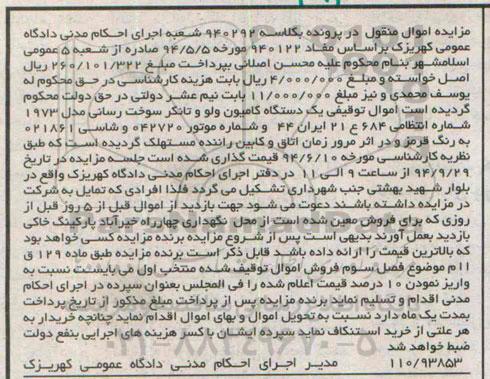 مزایده اموال منقول در پرونده بکلاسه ۹۴۰۲۹۲ شعبه اجرای احکام مدنی دادگاه
عمومی کهریزک براساس مفاد ۹۴۰۱۲۲ مورخه ۹۴/۵/۵ صادره از شعبه ۵ عمومی
اسلامشهر بنام محکوم علیه محسن اصلانی بپرداخت مبلغ ۲۶۰/۱۰۱/۳۲۲ ریال بابت
اصل خواسته و مبلغ ۴/۰۰۰/۰۰۰ ریال بابت هزینه کارشناسی در حق محکوم له
یوسف محمدی و نیز مبلغ ۱۱/۰۰۰/۰۰۰ بابت نیم عشر دولتی در حق دولت محکوم
گردیده است اموال توقیفی یک دستگاه کامیون ولو و تانکر سوخت رسانی مدل ۱۹۷۳
شماره انتظامی ۶۸۴ ع ۲۱ ایران ۴۴ و شماره موتور ۰۴۲۷۲۰ و شاسی ۰۲۱۸۶۱
به رنگ قرمز و در اثر مرور زمان اتاق و کابین راننده مستهلک گردیده است که طبق
نظریه کارشناسی مورخه ۹۴/۶/۱۰ قیمت گذاری شده است جلسه مزایده در تاریخ
۹۴/۹/۲۹ از ساعت ۹ الی ۱۰ در دفتر اجرای احکام مدنی دادگاه کهریزک واقع در
بلوار شهید بهشتی جنب شهرداری تشکیل می گردد فلذا افرادی که تمایل به شرکت
در مزایده داشته باشند دعوت می شود جهت بازدید از اموال قبل از ۵ روز قبل از
روزی که برای فروش معین شده است از محل نگهداری چهارراه خیرآباد پارکینگ خاکی
بازدید بعمل آورند بدیهی است پس از شروع مزایده برنده مزایده کسی خواهد بود
که بالاترین قیمت را ارائه داده باشد قابل ذکر است برنده مزایده طبق ماده ۱۲۹ ق
ا ا م موضوع فصل سوم فروش اموال توقیف شده منتخب اول می بایست نسبت به
واریز نمودن ۱۰ درصد قیمت اعلام شده را فی المجلس بعنوان سپرده در اجرای احکام
مدنی اقدام و تسلیم نماید برنده مزایده پس از پرداخت مبلغ مذکور از تاریخ پرداخت
بمدت یک ماه دارد نسبت به تحویل اموال و بهای اموال اقدام نماید چنانچه خریدار به
هر علتی از خرید استنکاف نماید سپرده ایشان با کسر هزینه های اجرایی بنفع دولت
ضبط خواهد شد
۱۱۰/۹۳۸۵۳ مدیر اجرای احکام مدنی دادگاه عمومی کهریزک